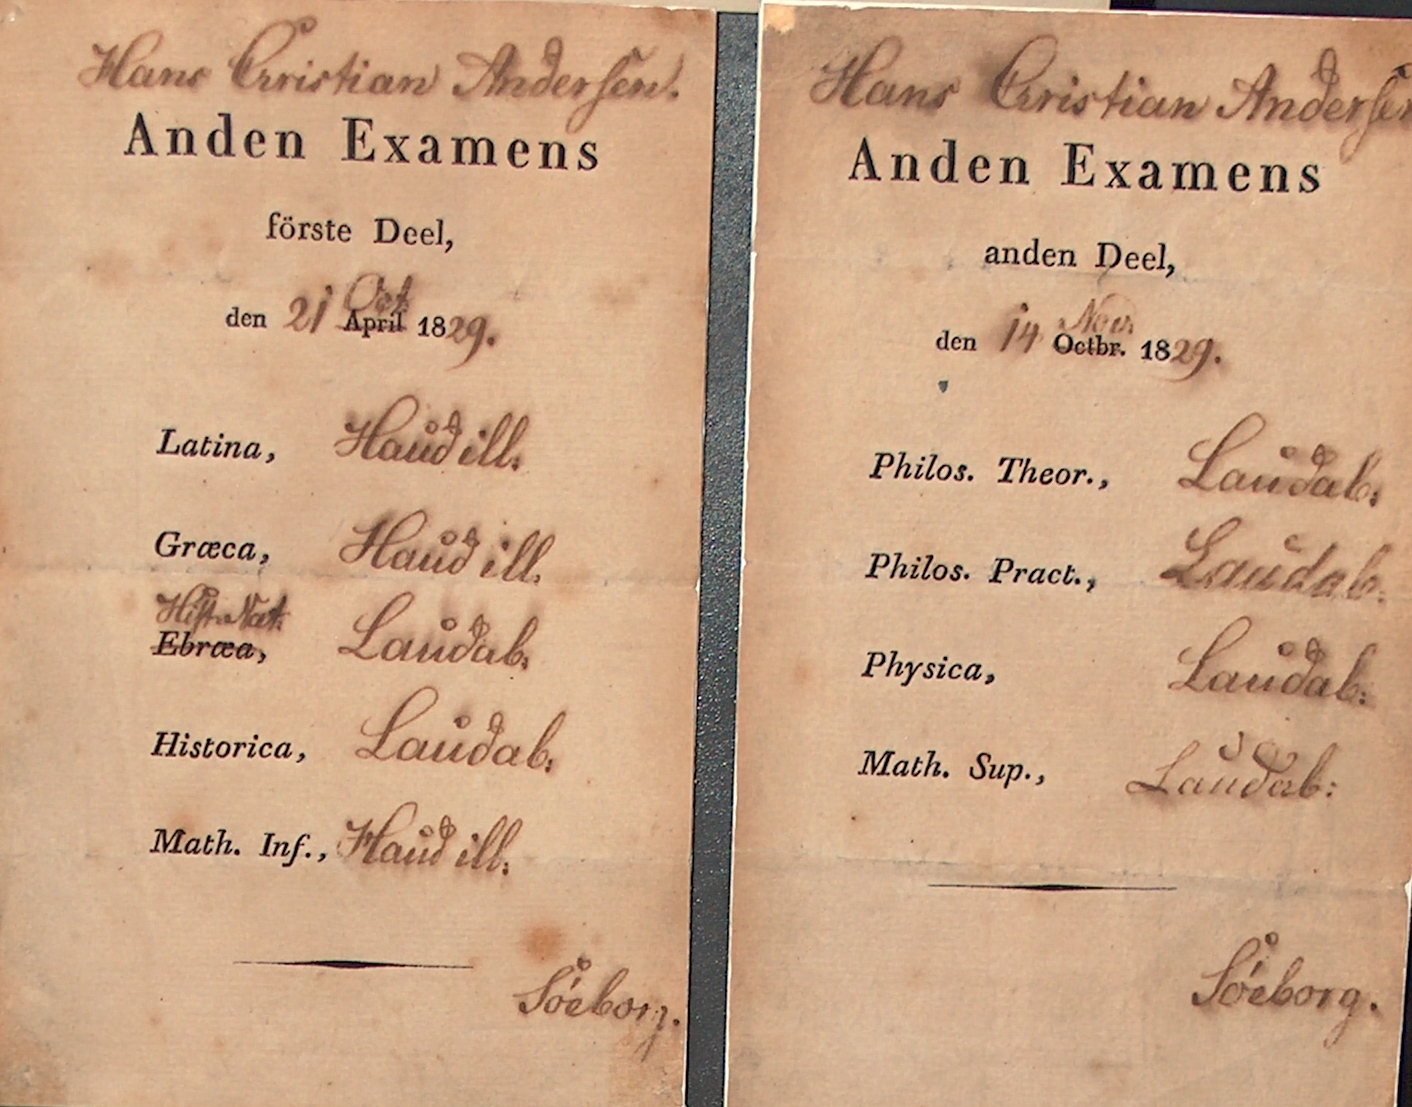 Hans Christian Andersen.
Anden Examens
förste Deel,
Oct
den 21 April 1829.
Latina, Haud ill.
Græca, Haud ill.
Hist. Nat.
Ebræa, Laudab.
Historica, Laudab.
Math. Inf., Haud ill.
Söeborg.
Hans Christian Andersen
Anden Examens
anden Deel,
Nov.
den 14 Octbr. 1829.
Philos. Theor., Laudab.
Philos. Pract., Laudab.
Physica, Laudab.
Math. Sup., Laudab:
Söeborg.